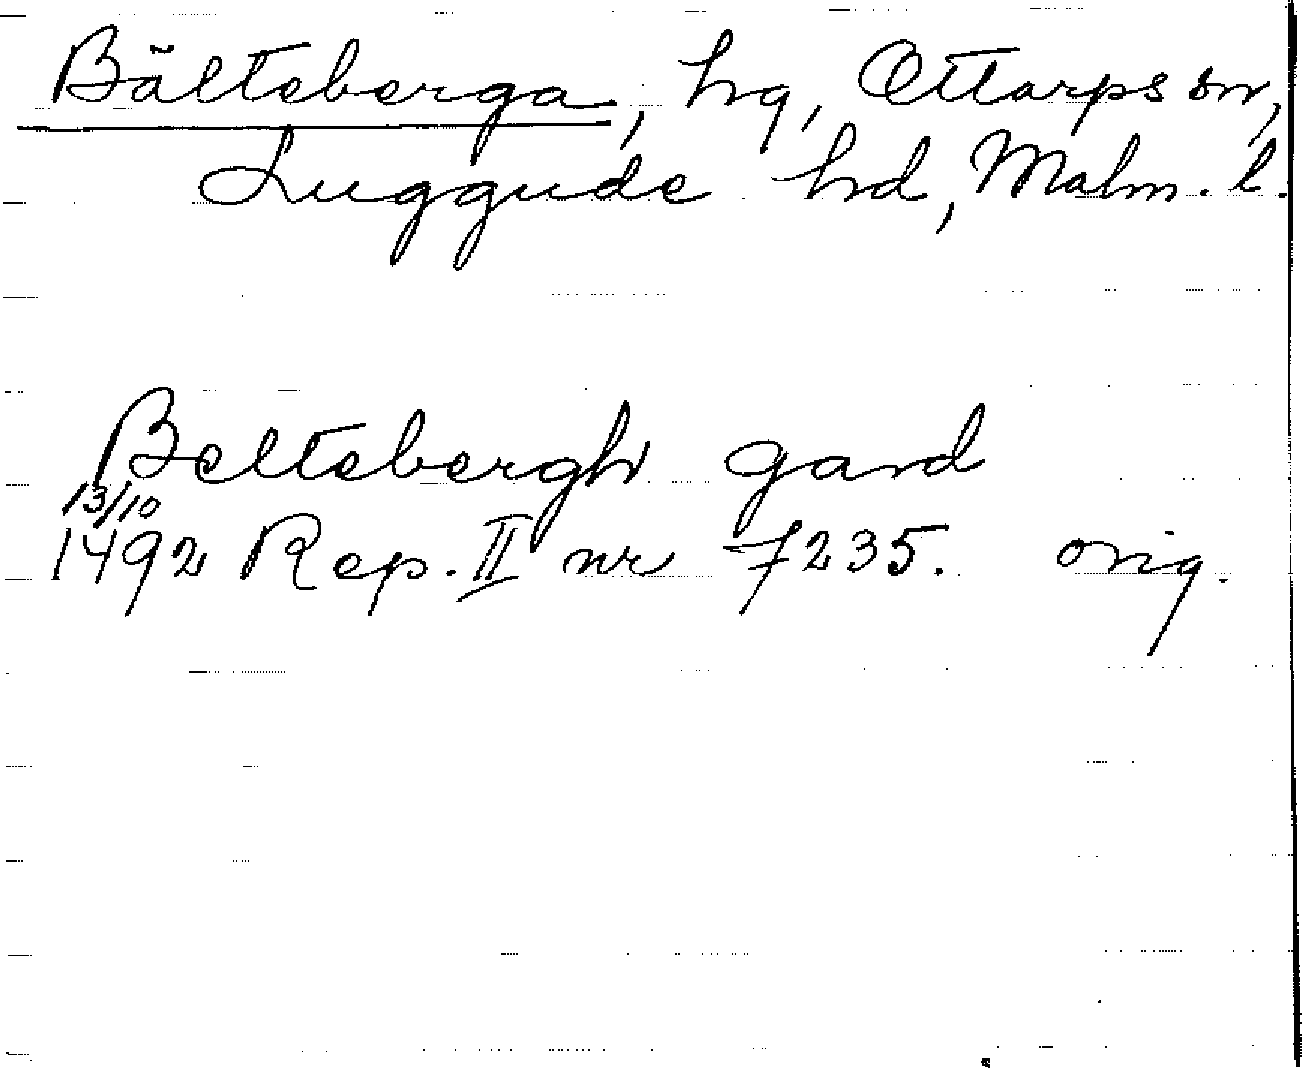 Bälteberga, hg, Ottarps sn,
Luggude hd, Malm. l.
Beltebergh gard
13/10
1492 Rep. II nr 7235. orig.